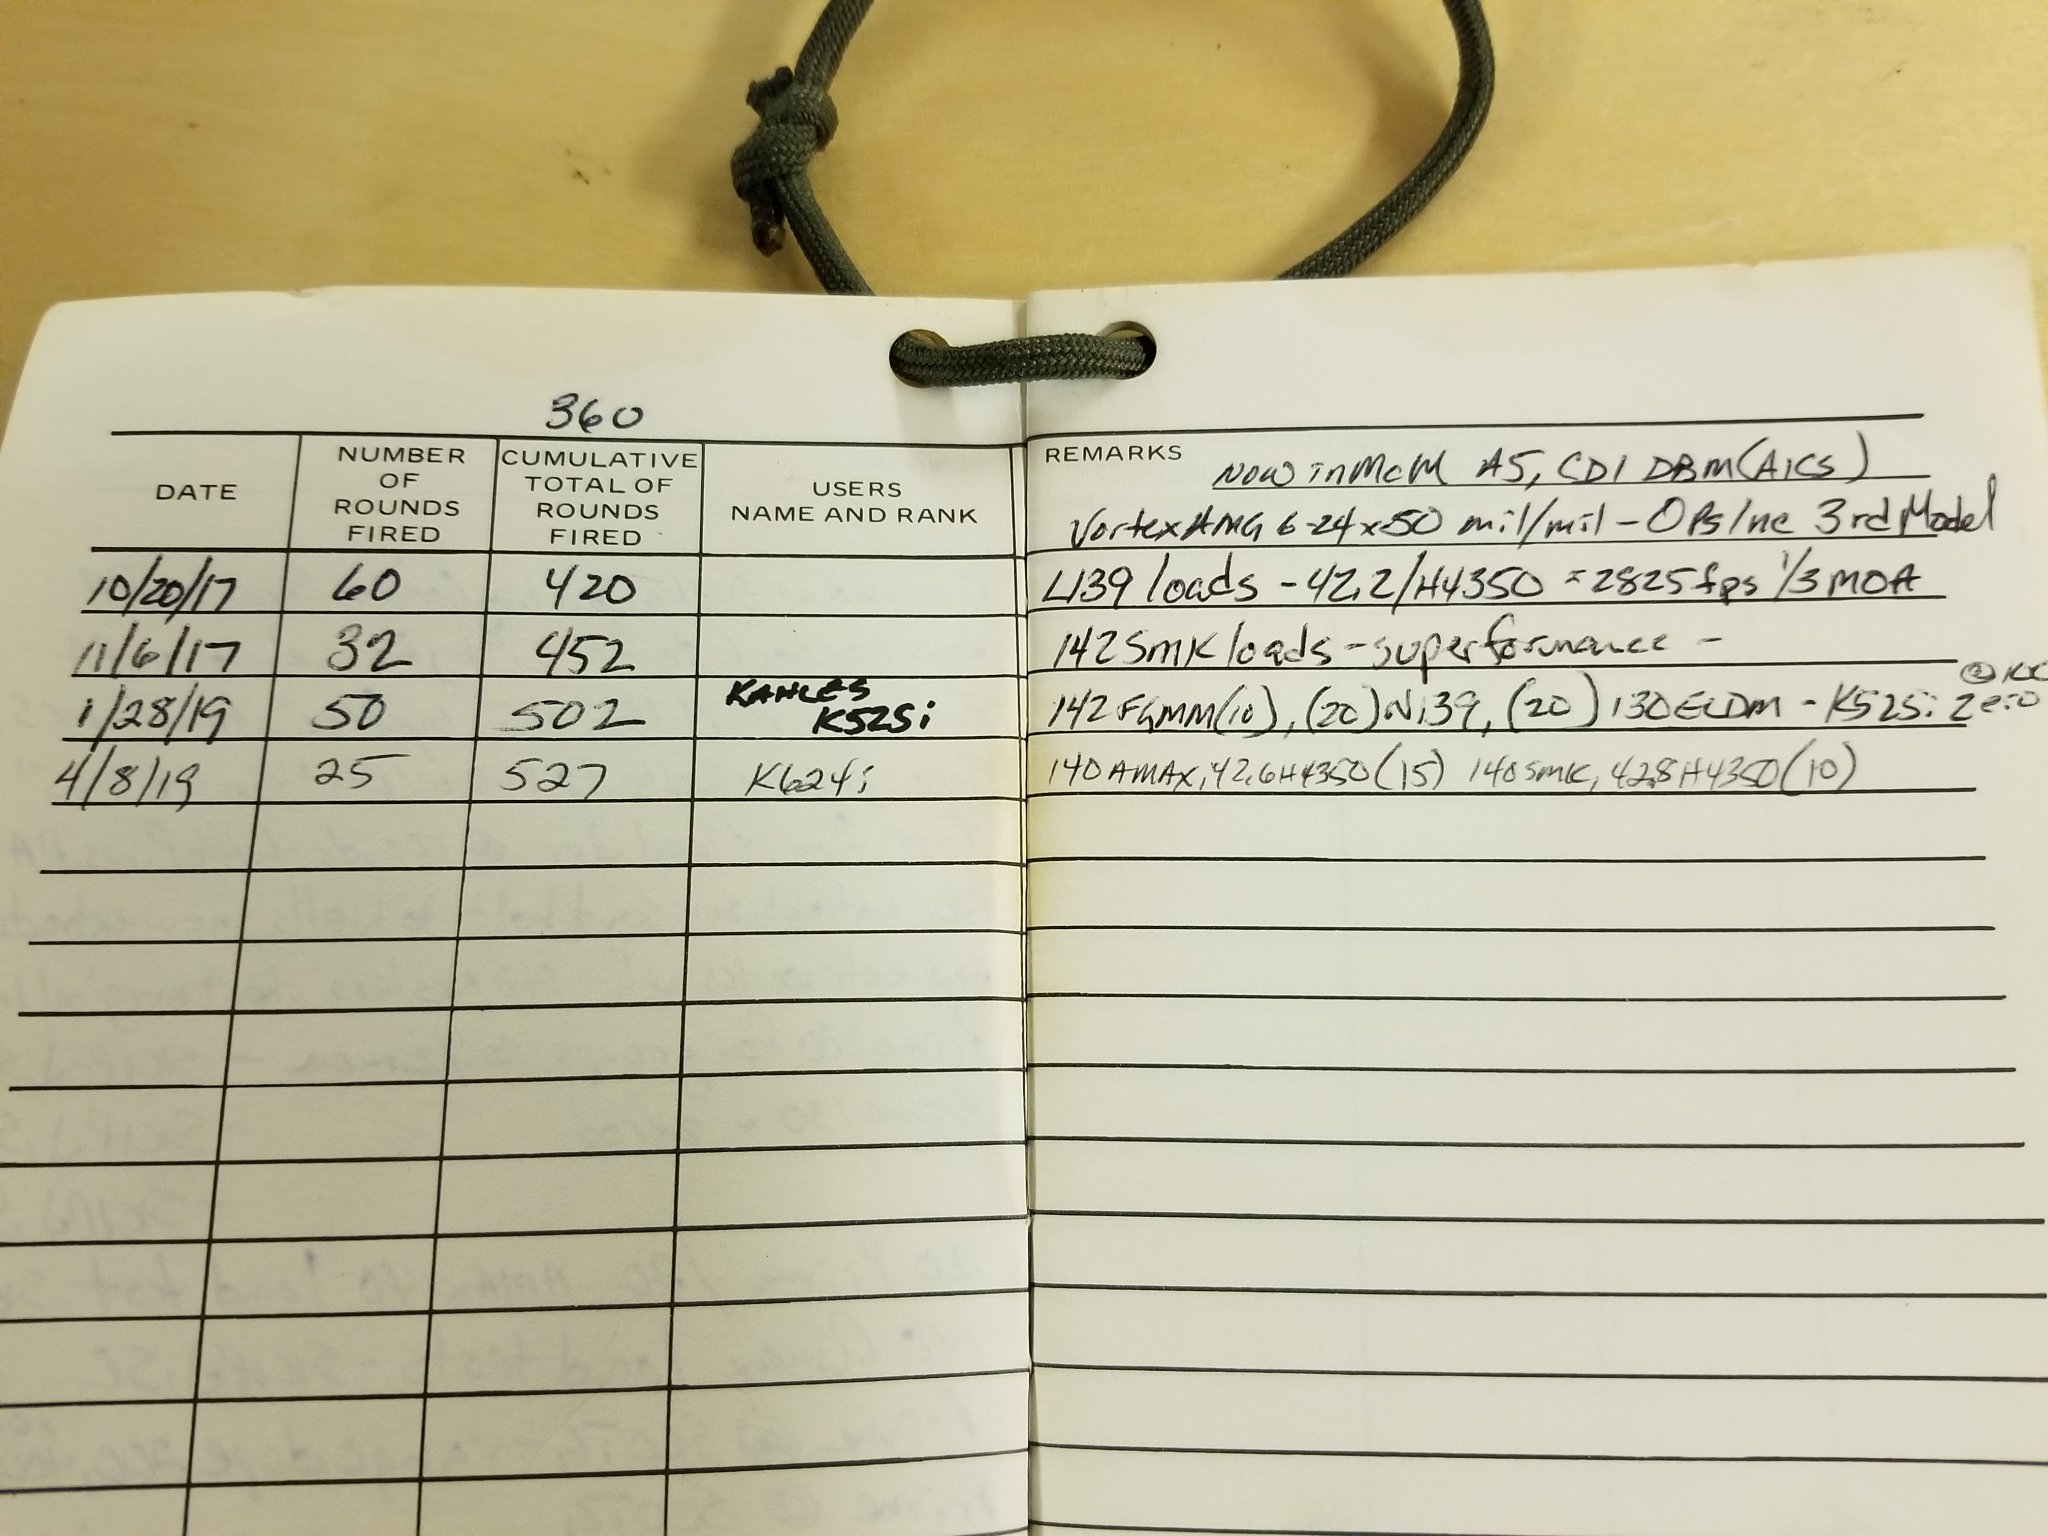 360
DATE
NUMBER OF ROUNDS FIRED
CUMULATIVE TOTAL OF ROUNDS FIRED
USERS NAME AND RANK
REMARKS Now in McM A5, CDI DBM (AICS)
Vortex AMG 6-24x50 mil/mil - OPS Inc 3rd Model
10/20/17 60 420 L139 loads - 42.2/H4350 = 2825fps 1/3 MOA
11/6/17 32 452 142 SMK loads - superformance -
1/28/19 50 502 KAHLES K525i 142 FGMM(10), (20) N139, (20) 130 ELDM - K525i Zero
4/8/19 25 527 K624i 140 AMAX, 42.6 H4350 (15) 140 SMK, 42.8 H4350 (10)